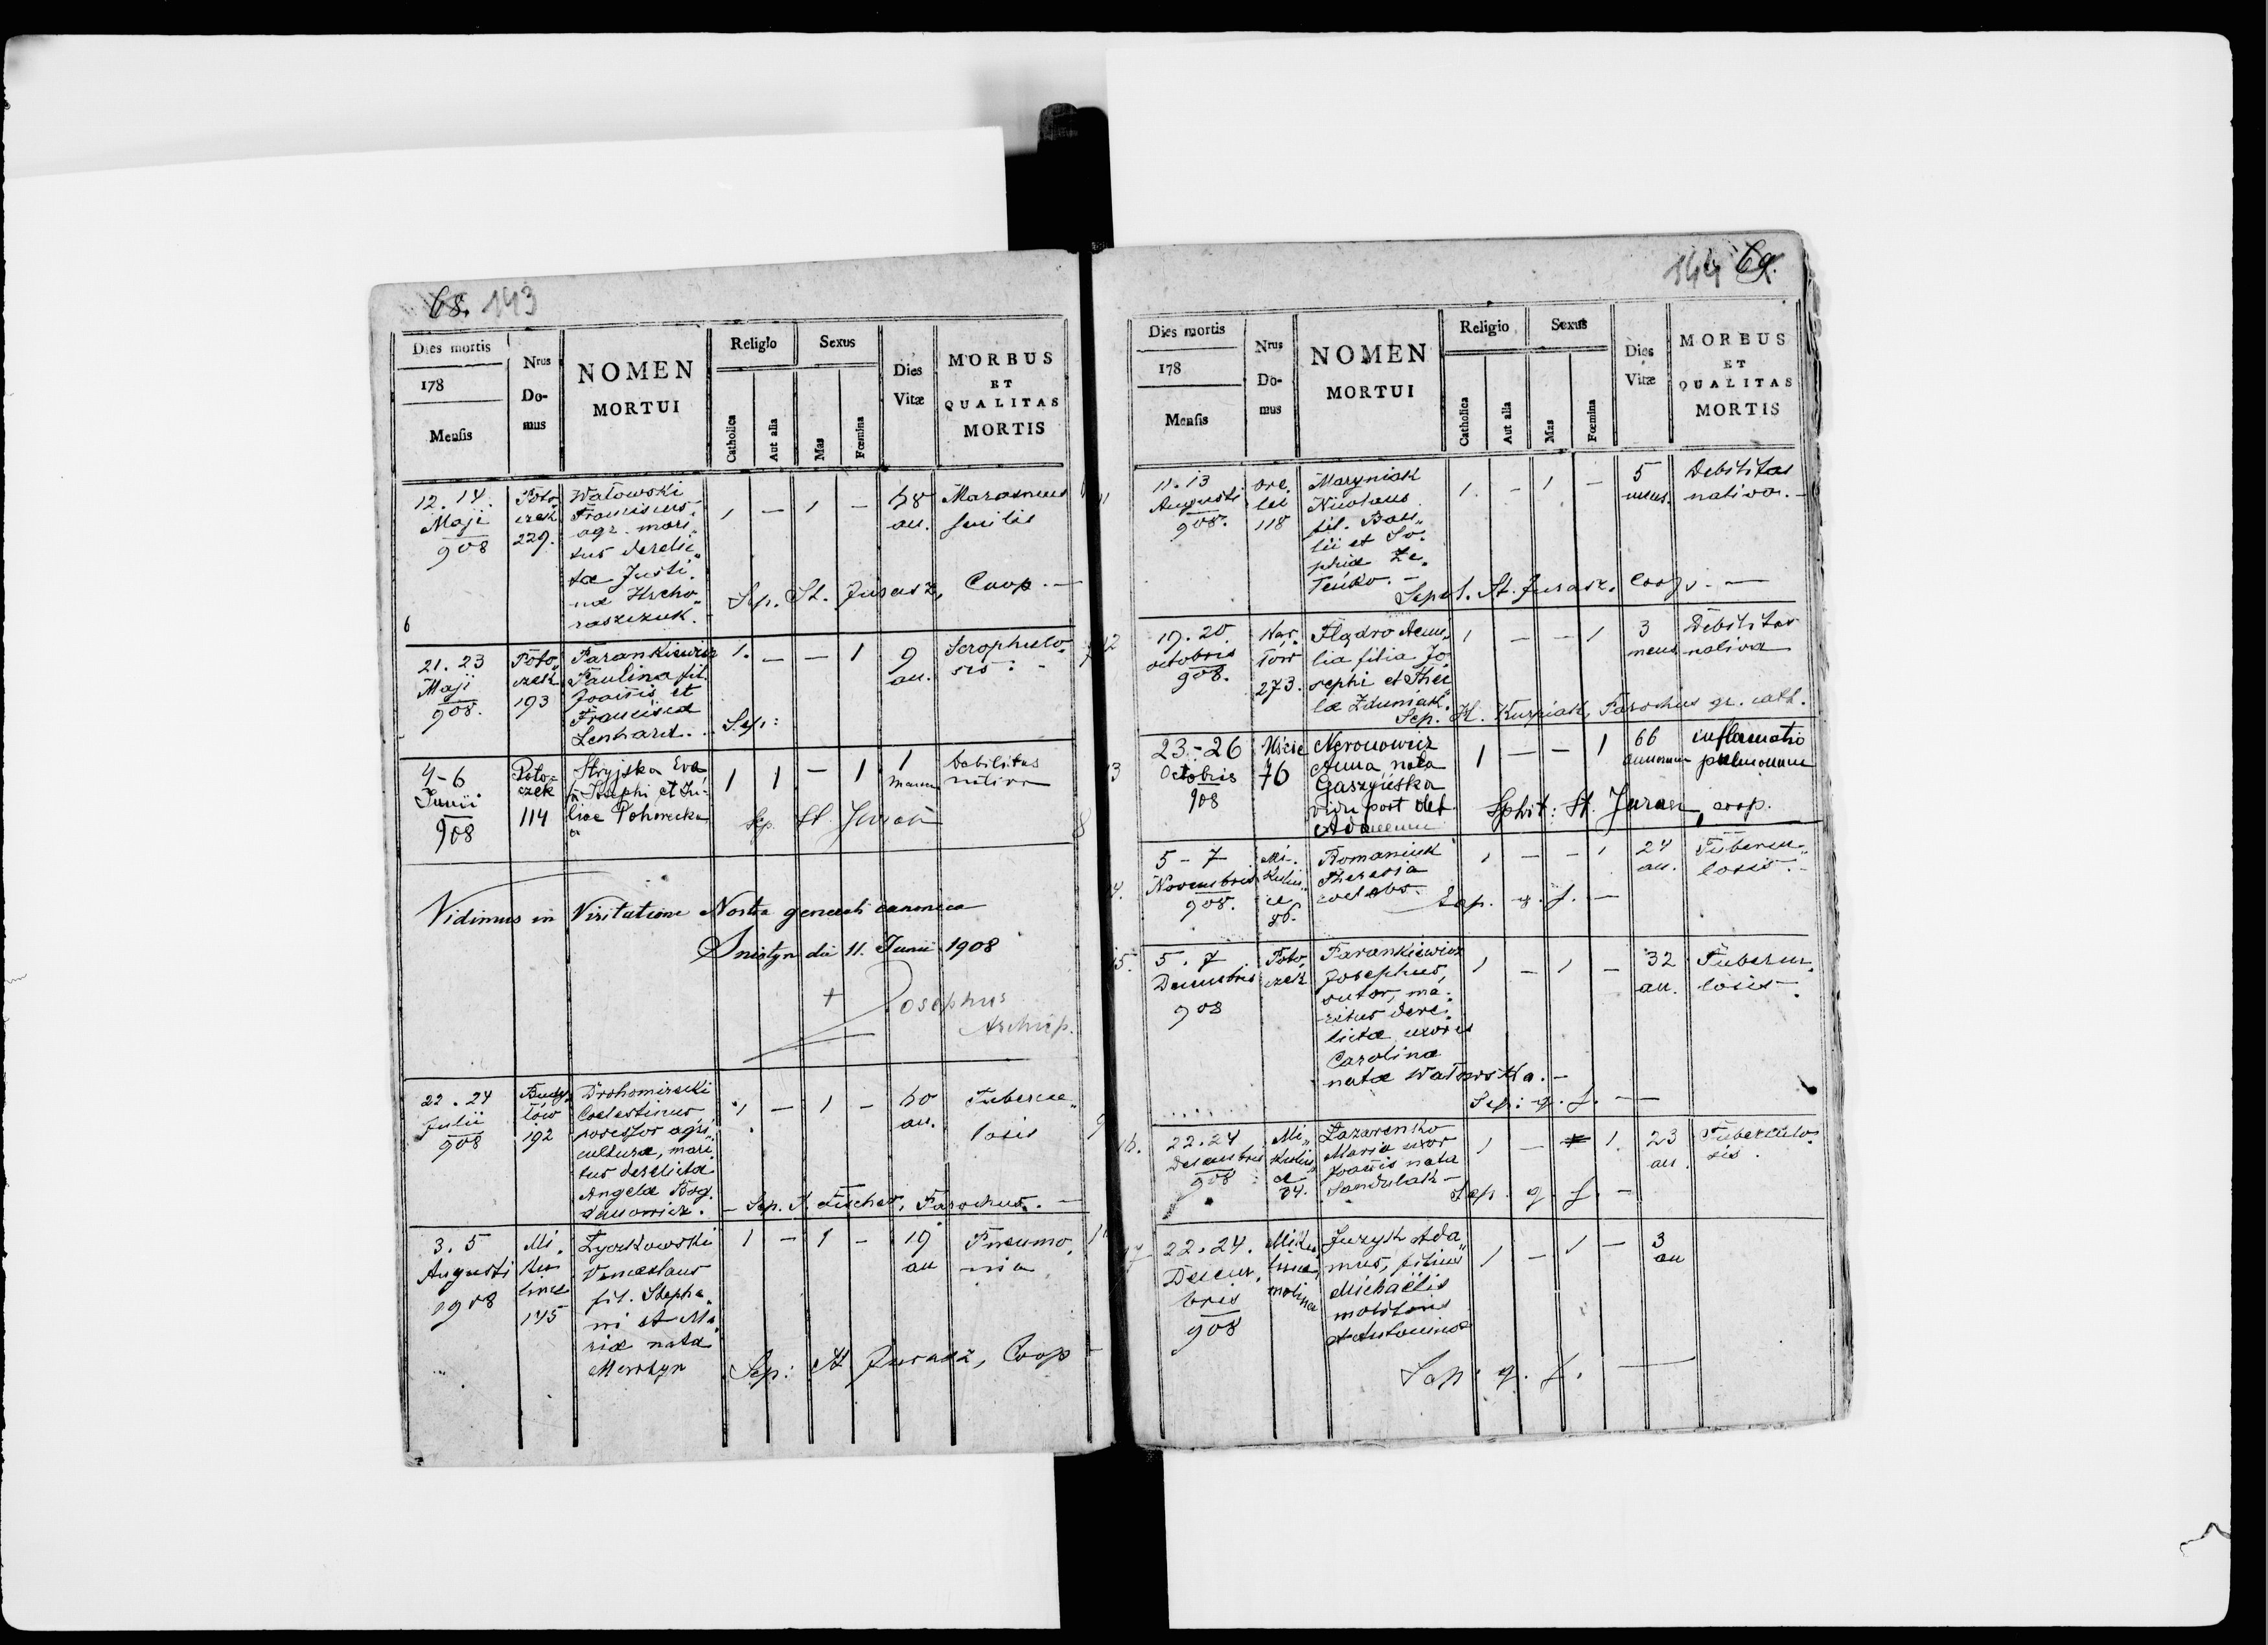 68. 143
Dies mortis
178
Mensis
Nrus
Do-
mus
NOMEN
MORTUI
Religio
Catholica
Aut alia
Sexus
Mas
Fœmina
Dies
Vitæ
MORBUS
ET
QUALITAS
MORTIS
12. 14.
Maji
908
Poto
czek
229.
Watowski
Franciscus,
agr. mari,
tus derelic,,
tae Justi,
nae Hrcho,,
raszczuk.
1 — 1 —
68
an.
Marasmus
senilis
Sep. St. Jurasz, Coop. —
6
21. 23
Maji
908.
Poto,
czek
193
Tarankiewicz
Paulina fil.
Joannis et
Francisca
Lenhard.
1. — — 1
9
an.
Scrophulo,
sis. -
Sep:
7
4-6
Junii
908
Poto-
czek
114
Stryjska Eva
fa Josephi et Ju-
liae Pohorecka
1 1 — 1
1
mens
Debilitas
nativa
Sep. St. Jurasz
8
Vidimus in Visitatione Nostra generali canonica
Sniatyn die 11. Junii 1908
+ Josephus
Archiep.
22. 24
Julii
908
Budy,
łów
192
Drohomirecki
Coelestinus,
posessor agri,,
culturae, mari,
tus derelictae
Angelae Bog,
danowicz.
1 — 1 —
60
an.
Tubercu,,
losis
9
— Sep. J. Fischer, Parochus. —
3. 5
Augusti
1908
Mi,
ku
lince
145
Zyczkowski
Venceslaus
fil. Stepha,,
ni et Ma,
riae nata
Merstyn
1 — 1 —
19
an
Pneumo,
nia
Sep: St Jurasz, Coop —
144 69.
Dies mortis
178
Mensis
Nrus
Do-
mus
NOMEN
MORTUI
Religio
Catholica
Aut alia
Sexus
Mas
Fœmina
Dies
Vitæ
MORBUS
ET
QUALITAS
MORTIS
11
11. 13
Augusti
908.
ore,
lec
118
Maryniak
Nicolaus
fil. Basi,
lii et So,
phiae Ze,
lenko. —
1. - 1 -
5
mens.
Debilitas
nativa. -
Sepel. St. Jurasz, Coop. —
12
19. 20.
octobris
908.
273.
lia filia Jo,
sephi et The,
la Zduniak.
1 — — 1
3
mens
Debilitas
nativa
Sep. K. Kurpiak, Parochus gr. cath.
13
23-26
Octobris
908
Uście
76
Neronowicz
Anna nata
vidu post def.
Adamum
1 — — 1
66
annorum
inflamatio
pulmonum
Sphit: St. Jurasz, coop.
14.
5-7
Novembris
908.
Mi-
kulin,,
ce
86.
Romaniuk
Theresia
coelebs.
1 — - 1
24
an.
Tubercu,,
losis. -
Sep. q. f. —
15.
5. 7
Decembris
908
Poto,
czek
Tarankiewicz
Josephus,
sutor, ma,
ritus dere,
licta uxoris
Carolina
nata Watowska. —
1 — 1 —
32
an.
Tubercu,
losis —
Sep: q. f. —
16.
22. 24
Decembris
908
Mi,,
kulin,,
ce
34.
Lazarenko
Maria uxor
Joannis nata
Sandulak —
1 — 1.
23
an.
Tuberculo,
sis.
Sep. q f. —
17
22. 24.
Decem,
bris
908
Miku,
lince,
molina
Juzysk Ada,,
mus, filius
Michaëlis
molitoris
et Antonina
1 — 1 —
3
an
Sep. q. f. —